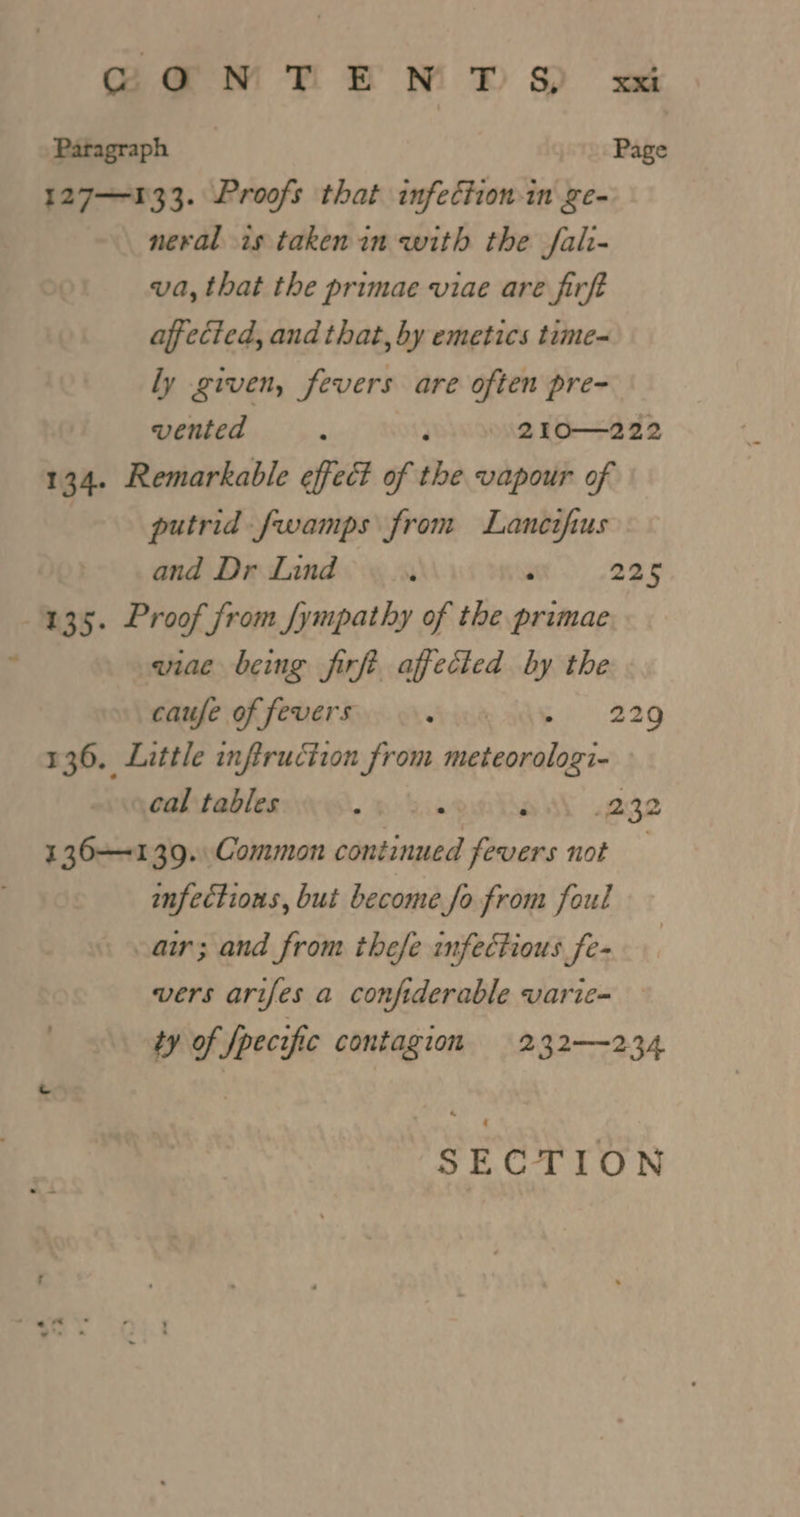 CONTENTS, xxi
Paragraph Page
127—133. Proofs that infection in ge-
neral is taken in with the ſali-
va, that the primae viae are firſt
affected, and that, by emetics time-
ly given, fevers are often pre-
vented . . 210—222
134. Remarkable effect of the vapour of
putrid ſwamps from Lanciſius
and Dr Lind . . 225
135. Proof from ſympathy of the primae
viae being firſt affected by the
cauſe of fevers . . 229
136. Little inſtruction from meteorologi-
cal tables . . . 232
136—139. Common continued fevers not
infectious, but become ſo from foul
air; and from theſe infectious fe-
vers ariſes a conſiderable varie-
ty of ſpecific contagion 232—234
SECTION